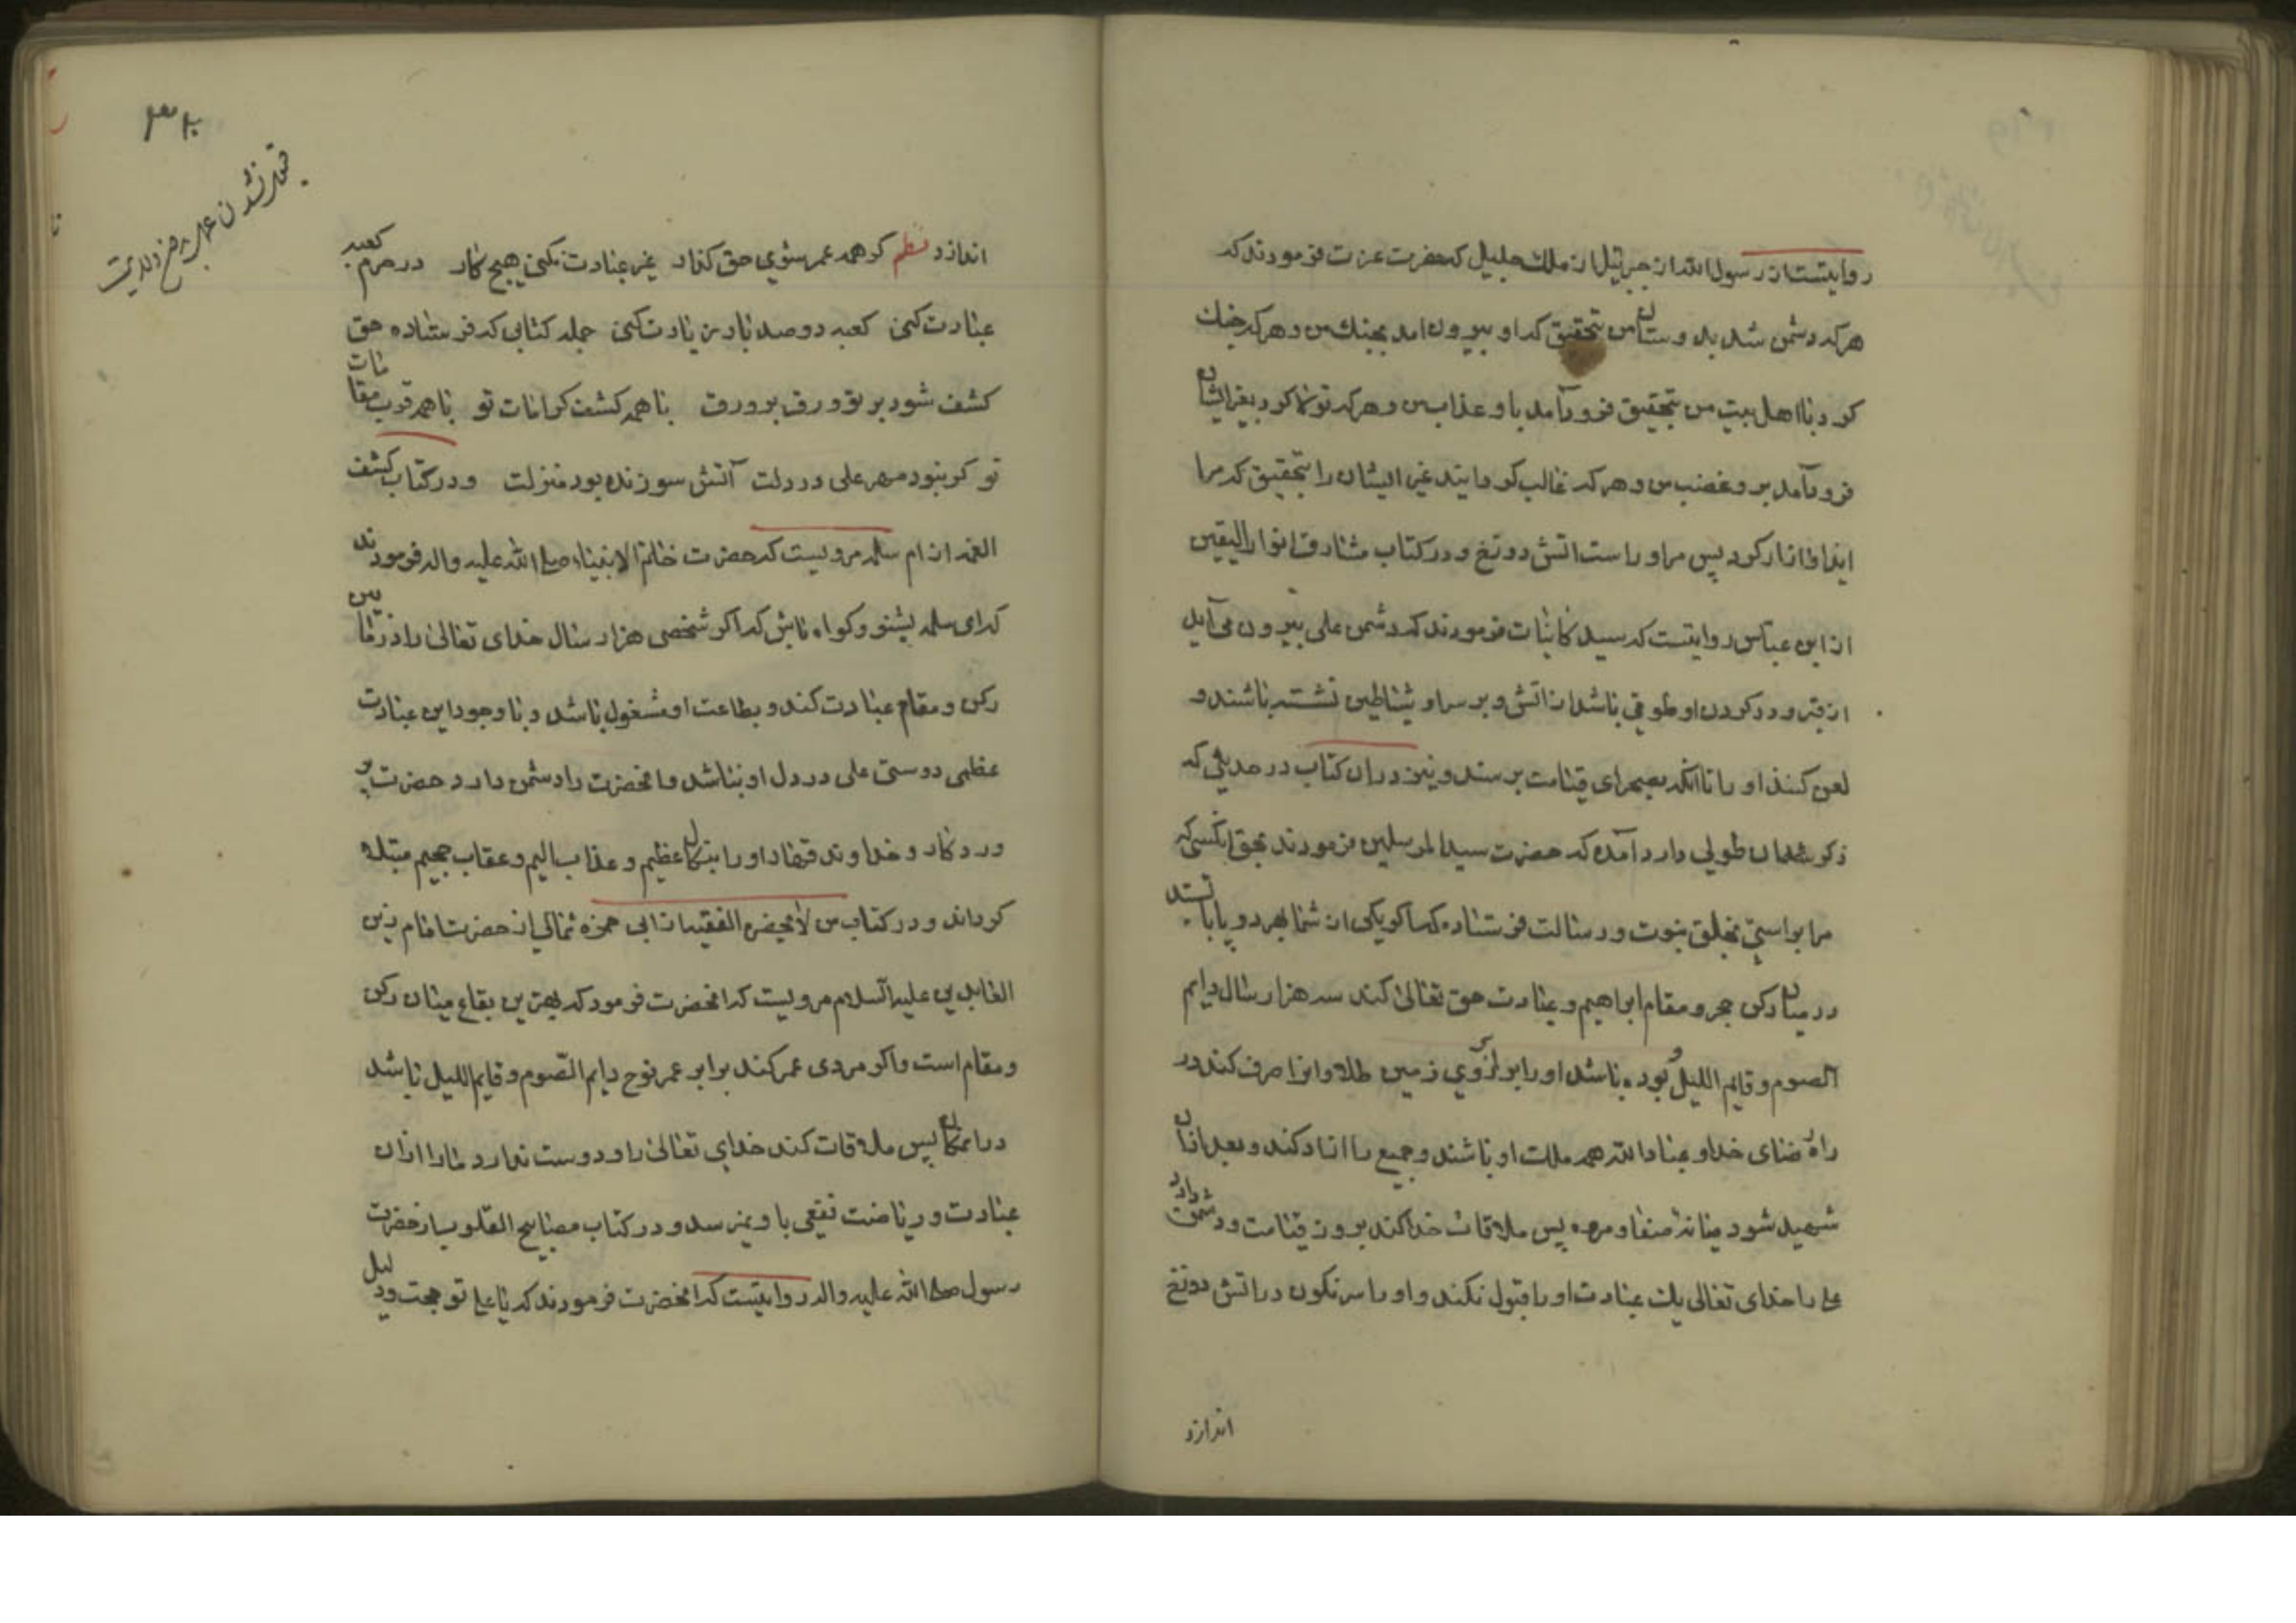 روایتست از رسول الله از جبرئیل از ملک جلیل که حضرت عزت فرمودند که
هرکه دشمن شد بدوستان من بتحقیق که او بیرون آمد بجنک من و هرکه جنک
کرد با اهل بیت من بتحقیق فرود آمد باو عذاب من و هرکه تولا کرد بغیر ایشان
فرود آمد برو غضب من و هرکه غالب کرداند غیر ایشان را بتحقیق که مرا
ایذا و ازار کرد پس مر او راست اتش دوزخ و در کتاب مشارق انوار الیقین
از ابن عباس روایتست که سید کاینات فرمودند که دشمن علی بیرون می آید
از قبر و در کردن او طوقی باشد از اتش و بر سر او شیاطین نشسته باشند و
لعن کنند او را تا انکه بصحرای قیامت برسند و نیز در ان کتاب در حدیثی که
ذکر شد ان طولی دارد آمده که حضرت سید المرسلین فرمودند بحق انکسی که
مرا براستی بخلق بنبوت و رسالت فرستاده که اکر یکی از شما بهر دو پا باستد
در میان رکن حجر و مقام ابراهیم و عبادت حق تعالی کند سه هزار سال دایم
الصوم و قایم اللیل بوده باشد و او را برابر روی زمین طلا و انرا صرف کند در
راه رضای خدا و عباد الله همه ملک او باشند و جمیع را ازاد کند و بعد از ان
شهید شود میانه صفا و مروه پس ملاقات خدا کند بروز قیامت و دشمن دارد
علی را خدای تعالی یک عبادت او را قبول نکند و او را سرنکون در اتش دوزخ
اندازد
قبول نشدن عمل
اندازد نظم کر همه عمر بسوی حق کذار غیر عبادت نکنی هیچ کار در حرم کعبه
عبادت کنی کعبه دو صد بار زیارت کنی جمله کتابی که فرستاده حق
کشف شود بر تو ورق بر ورق با همه کشف کرامات تو با همه قرب مقامات
تو کر نبود مهر علی در دلت آتش سوزنده بود منزلت و در کتاب کشف
الغمه از ام سلمه مرویست که حضرت خاتم الانبیاء صلی الله علیه واله فرمودند
که ای سلمه بشنو و کواه باش که اکر شخصی هزار سال خدای تعالی را در مابین
رکن و مقام عبادت کند و بطاعت او مشغول باشد و با وجود این عبادت
عظمی دوستی علی در دل او نباشد و انحضرت را دشمن دارد حضرت پر
وردکار و خداوند قهار او را بنکال عظیم و عذاب الیم و عقاب جحیم مبتلا
کرداند و در کتاب من لا یحضره الفقیه از ابی حمزه ثمالی از حضرت امام زین
العابدین علیه السلام مرویست که انحضرت فرمود که بهترین بقاع میان رکن
و مقام است و اکر مردی عمر کند برابر عمر نوح دایم الصوم و قایم اللیل باشد
در انمکان پس ملاقات کند خدای تعالی را و دوست ندارد ما را از ان
عبادت و ریاضت نفعی باو نمیرسد و در کتاب مصابیح القلوب از حضرت
رسول صلی الله علیه واله روایتست که انحضرت فرمودند که یا علی تو حجت و دلیل